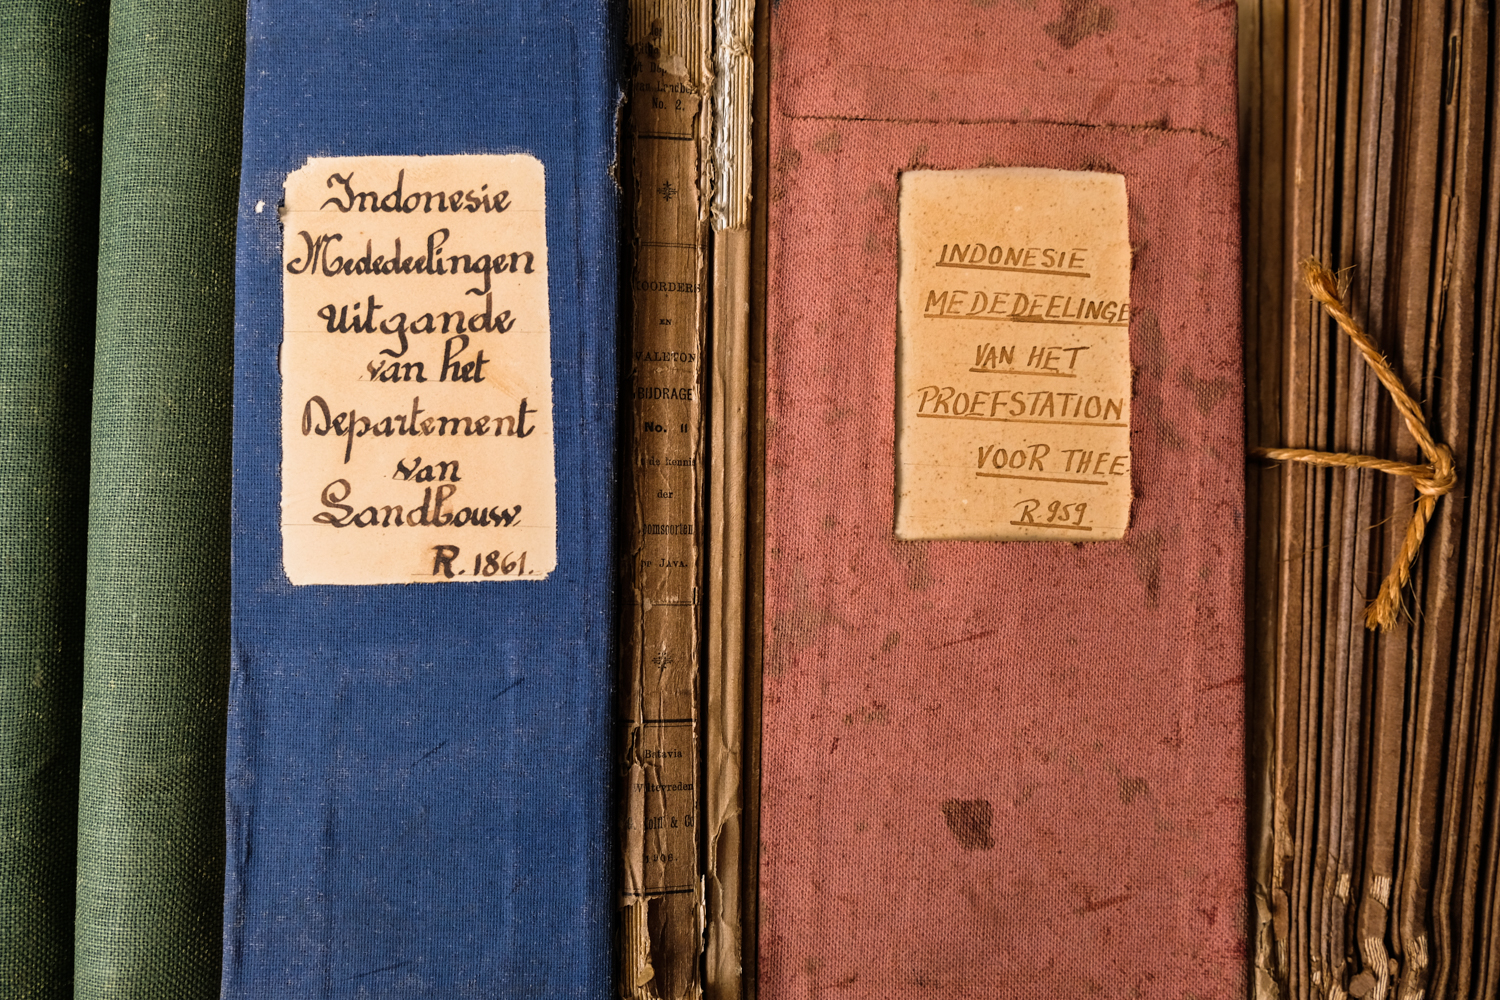 Indonesie
Mededeelingen
Uitgande
van het
Departement
van
Landbouw
R. 1861.
No. 2.
KOORDERS
EN
VALETON
BIJDRAGE
No. 11
de kennis
der
Boomsoorten
JAVA.
Batavia
Weltevreden
Kolff & Co
1906.
INDONESIE
MEDEDEELINGE
VAN HET
PROEFSTATION
VOOR THEE
R. 959